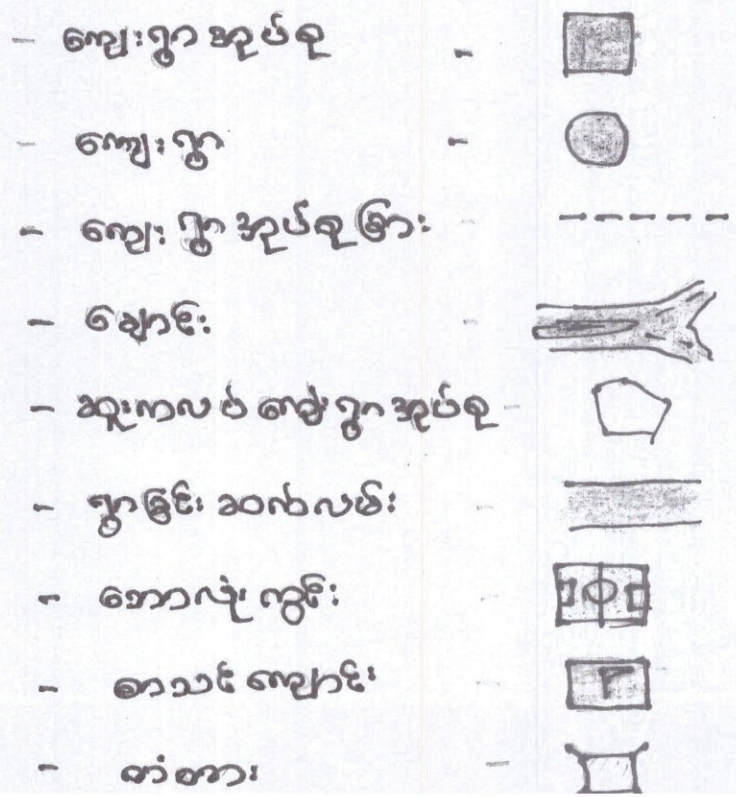 - ကျေးရွာအုပ်စု -
- ကျေးရွာ -
- ကျေးရွာအုပ်စုခြား -
- ချောင်း -
- ဆူးကလပ် ကျေးရွာအုပ်စု -
- ရွာချင်းဆက်လမ်း -
- ဘောလုံးကွင်း -
- စာသင်ကျောင်း -
- တံတား -